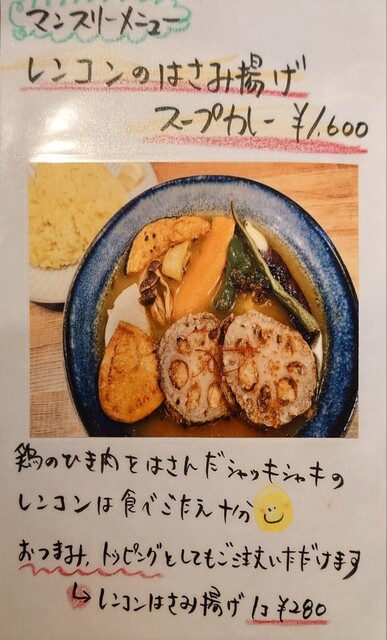 マンスリーメニュー
レンコンのはさみ揚げ
スープカレー ¥1,600
鶏のひき肉をはさんだシャッキシャキの
レンコンは食べごたえ十分
おつまみ、トッピングとしてもご注文いただけます
↳ レンコンはさみ揚げ 1コ ¥280